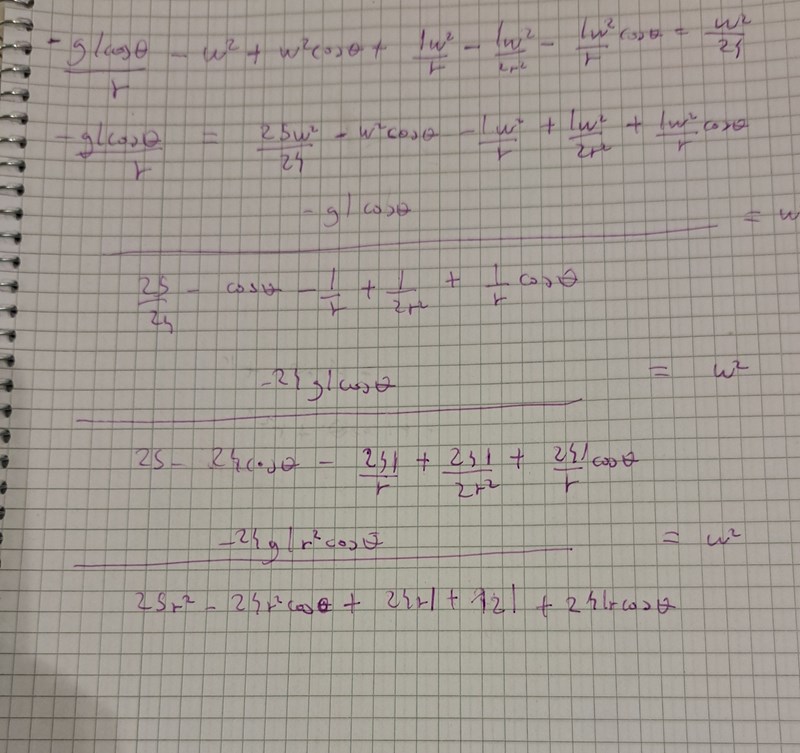 -glcosθ/r - w² + w²cosθ + lw²/r - lw²/2r² - lw²/r cosθ = w²/24
-glcosθ/r = 25w²/24 - w²cosθ - lw²/r + lw²/2r² + lw²/r cosθ
-glcosθ / (25/24 - cosθ - l/r + l/2r² + l/r cosθ) = w
-24glcosθ / (25 - 24cosθ - 24l/r + 24l/2r² + 24l/r cosθ) = w²
-24glr²cosθ / (25r² - 24r²cosθ + 24rl + 12l + 24lrcosθ) = w²